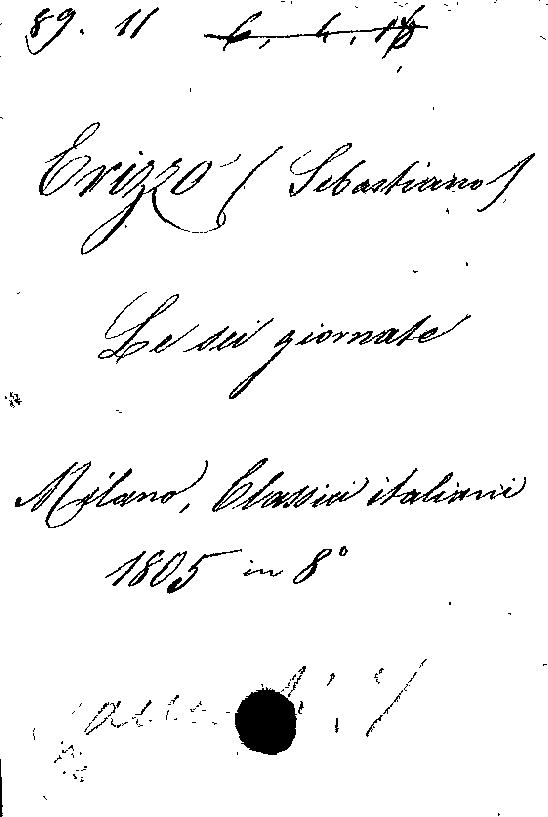 89. 11
Erizzo (Sebastiano)
Le sei giornate
Milano, Classici italiani
1805 in 8°